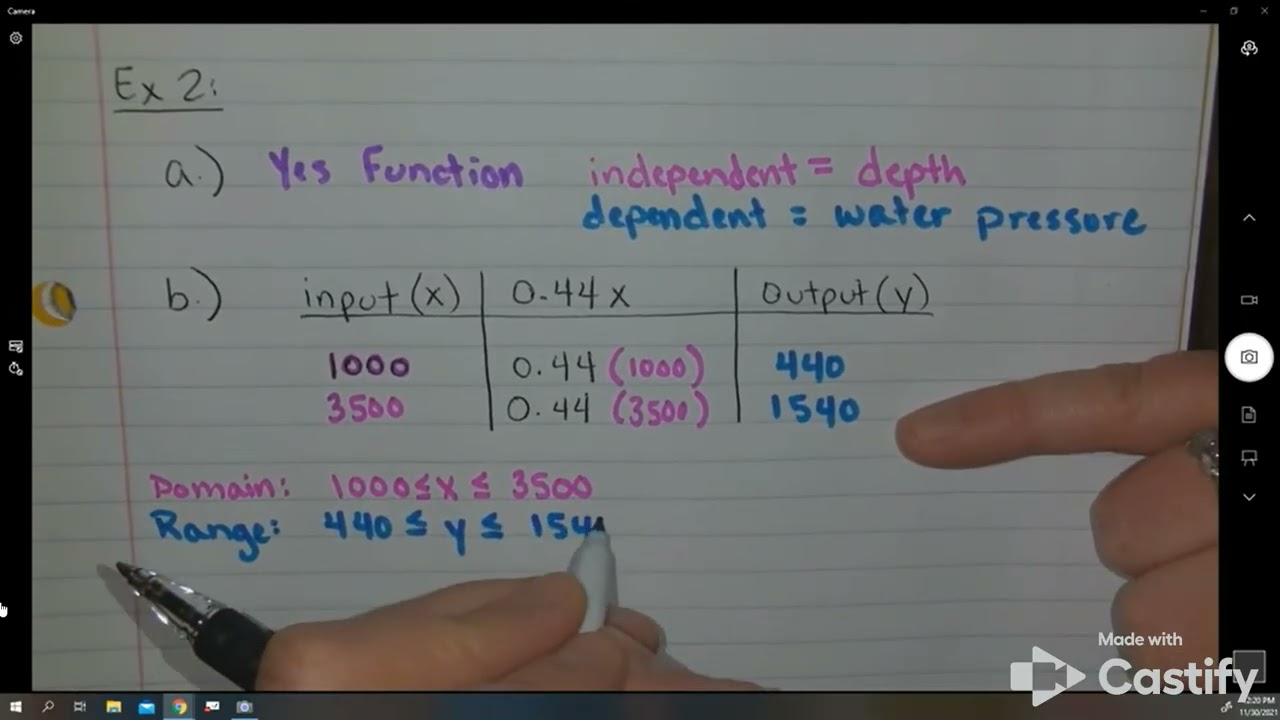 Camera
Ex 2:
a.) Yes Function independent = depth
dependent = water pressure
b.) input (x) 0.44x output (y)
1000 0.44 (1000) 440
3500 0.44 (3500) 1540
Domain: 1000 ≤ x ≤ 3500
Range: 440 ≤ y ≤ 154
Made with
Castify
2:20 PM
11/30/2021